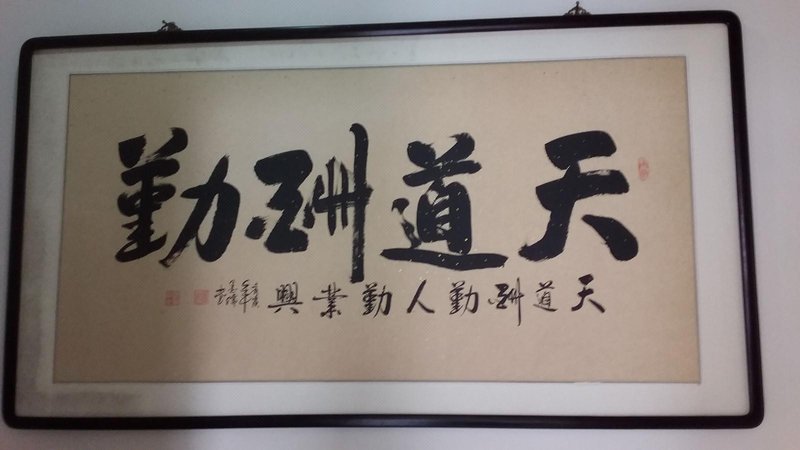 天道酬勤
天道酬勤人勤業興